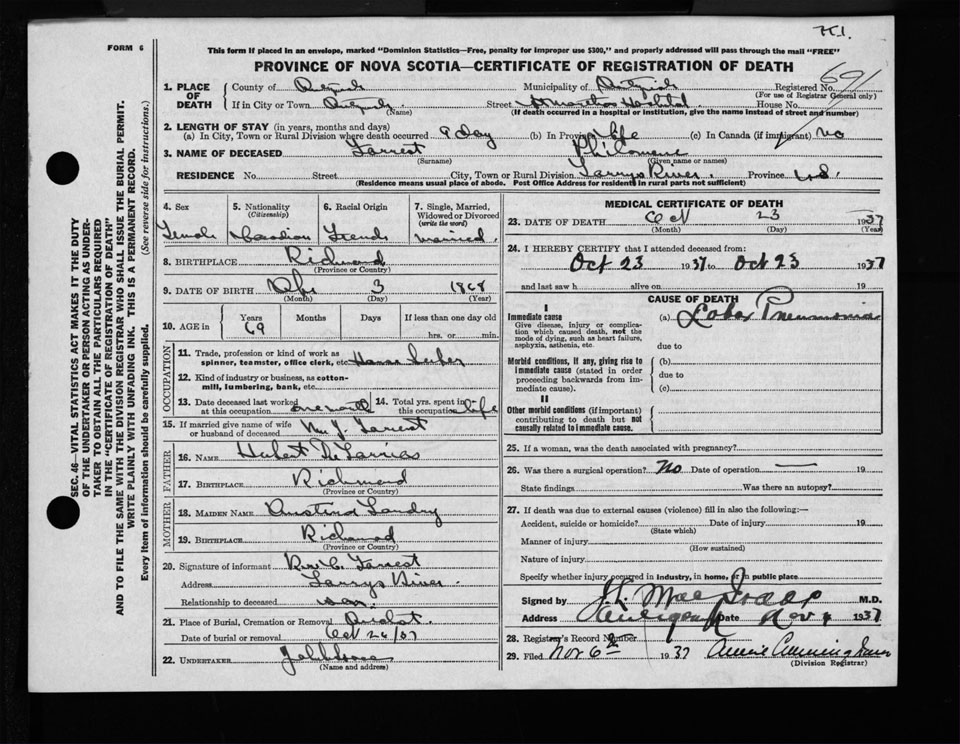 FORM 6
This form if placed in an envelope, marked "Dominion Statistics—Free, penalty for improper use $300," and properly addressed will pass through the mail "FREE"
PROVINCE OF NOVA SCOTIA—CERTIFICATE OF REGISTRATION OF DEATH
1. PLACE OF DEATH
County of
Municipality of
Registered No. 691
(For use of Registrar General only)
If in City or Town
(Name)
Street
House No.
(If death occurred in a hospital or institution, give the name instead of street and number)
2. LENGTH OF STAY (in years, months and days)
(a) In City, Town or Rural Division where death occurred 9 day (b) In Province life (c) In Canada (if immigrant) no
3. NAME OF DECEASED Forrest Philomene
(Surname) (Given name or names)
RESIDENCE No. Street City, Town or Rural Division Larrys River Province N.S.
(Residence means usual place of abode. Post Office Address for residents in rural parts not sufficient)
4. Sex
Female
5. Nationality
(Citizenship)
Canadian
6. Racial Origin
French
7. Single, Married, Widowed or Divorced
(write the word)
Married
8. BIRTHPLACE Richmond
(Province or Country)
9. DATE OF BIRTH 3 1868
(Month) (Day) (Year)
10. AGE in
Years
69
Months
Days
If less than one day old
hrs. or min.
OCCUPATION
11. Trade, profession or kind of work as spinner, teamster, office clerk, etc.
12. Kind of industry or business, as cotton-mill, lumbering, bank, etc.
13. Date deceased last worked at this occupation one month
14. Total yrs. spent in this occupation life
15. If married give name of wife or husband of deceased Wm J. Forrest
FATHER
16. NAME Hubert
17. BIRTHPLACE Richmond
(Province or Country)
MOTHER
18. MAIDEN NAME Landry
19. BIRTHPLACE Richmond
(Province or Country)
20. Signature of informant Forrest
Address Larrys River
Relationship to deceased son
21. Place of Burial, Cremation or Removal
Date of burial or removal Oct 26/37
22. UNDERTAKER
(Name and address)
MEDICAL CERTIFICATE OF DEATH
23. DATE OF DEATH Oct 23 1937
(Month) (Day) (Year)
24. I HEREBY CERTIFY that I attended deceased from:
Oct 23 1937 to Oct 23 1937
and last saw h alive on 19
CAUSE OF DEATH
I
Immediate cause
Give disease, injury or complication which caused death, not the mode of dying, such as heart failure, asphyxia, asthenia, etc.
(a) Lobar Pneumonia
due to
Morbid conditions, if any, giving rise to immediate cause (stated in order proceeding backwards from immediate cause).
(b)
due to
(c)
II
Other morbid conditions (if important) contributing to death but not causally related to immediate cause.
25. If a woman, was the death associated with pregnancy?
26. Was there a surgical operation? No Date of operation — 19
State findings Was there an autopsy?
27. If death was due to external causes (violence) fill in also the following:—
Accident, suicide or homicide? Date of injury 19
(State which)
Manner of injury
(How sustained)
Nature of injury
Specify whether injury occurred in industry, in home, or in public place
Signed by M.D.
Address Antigonish Date Nov 1937
28. Registrar's Record Number
29. Filed Nov 6th 1937 Annie Cunningham
(Division Registrar)
SEC. 46—VITAL STATISTICS ACT MAKES IT THE DUTY
OF THE UNDERTAKER OR PERSON ACTING AS UNDER-
TAKER TO OBTAIN ALL THE PARTICULARS REQUIRED
IN THE "CERTIFICATE OF REGISTRATION OF DEATH"
AND TO FILE THE SAME WITH THE DIVISION REGISTRAR WHO SHALL ISSUE THE BURIAL PERMIT.
WRITE PLAINLY WITH UNFADING INK. THIS IS A PERMANENT RECORD.
Every item of information should be carefully supplied. (See reverse side for instructions.)